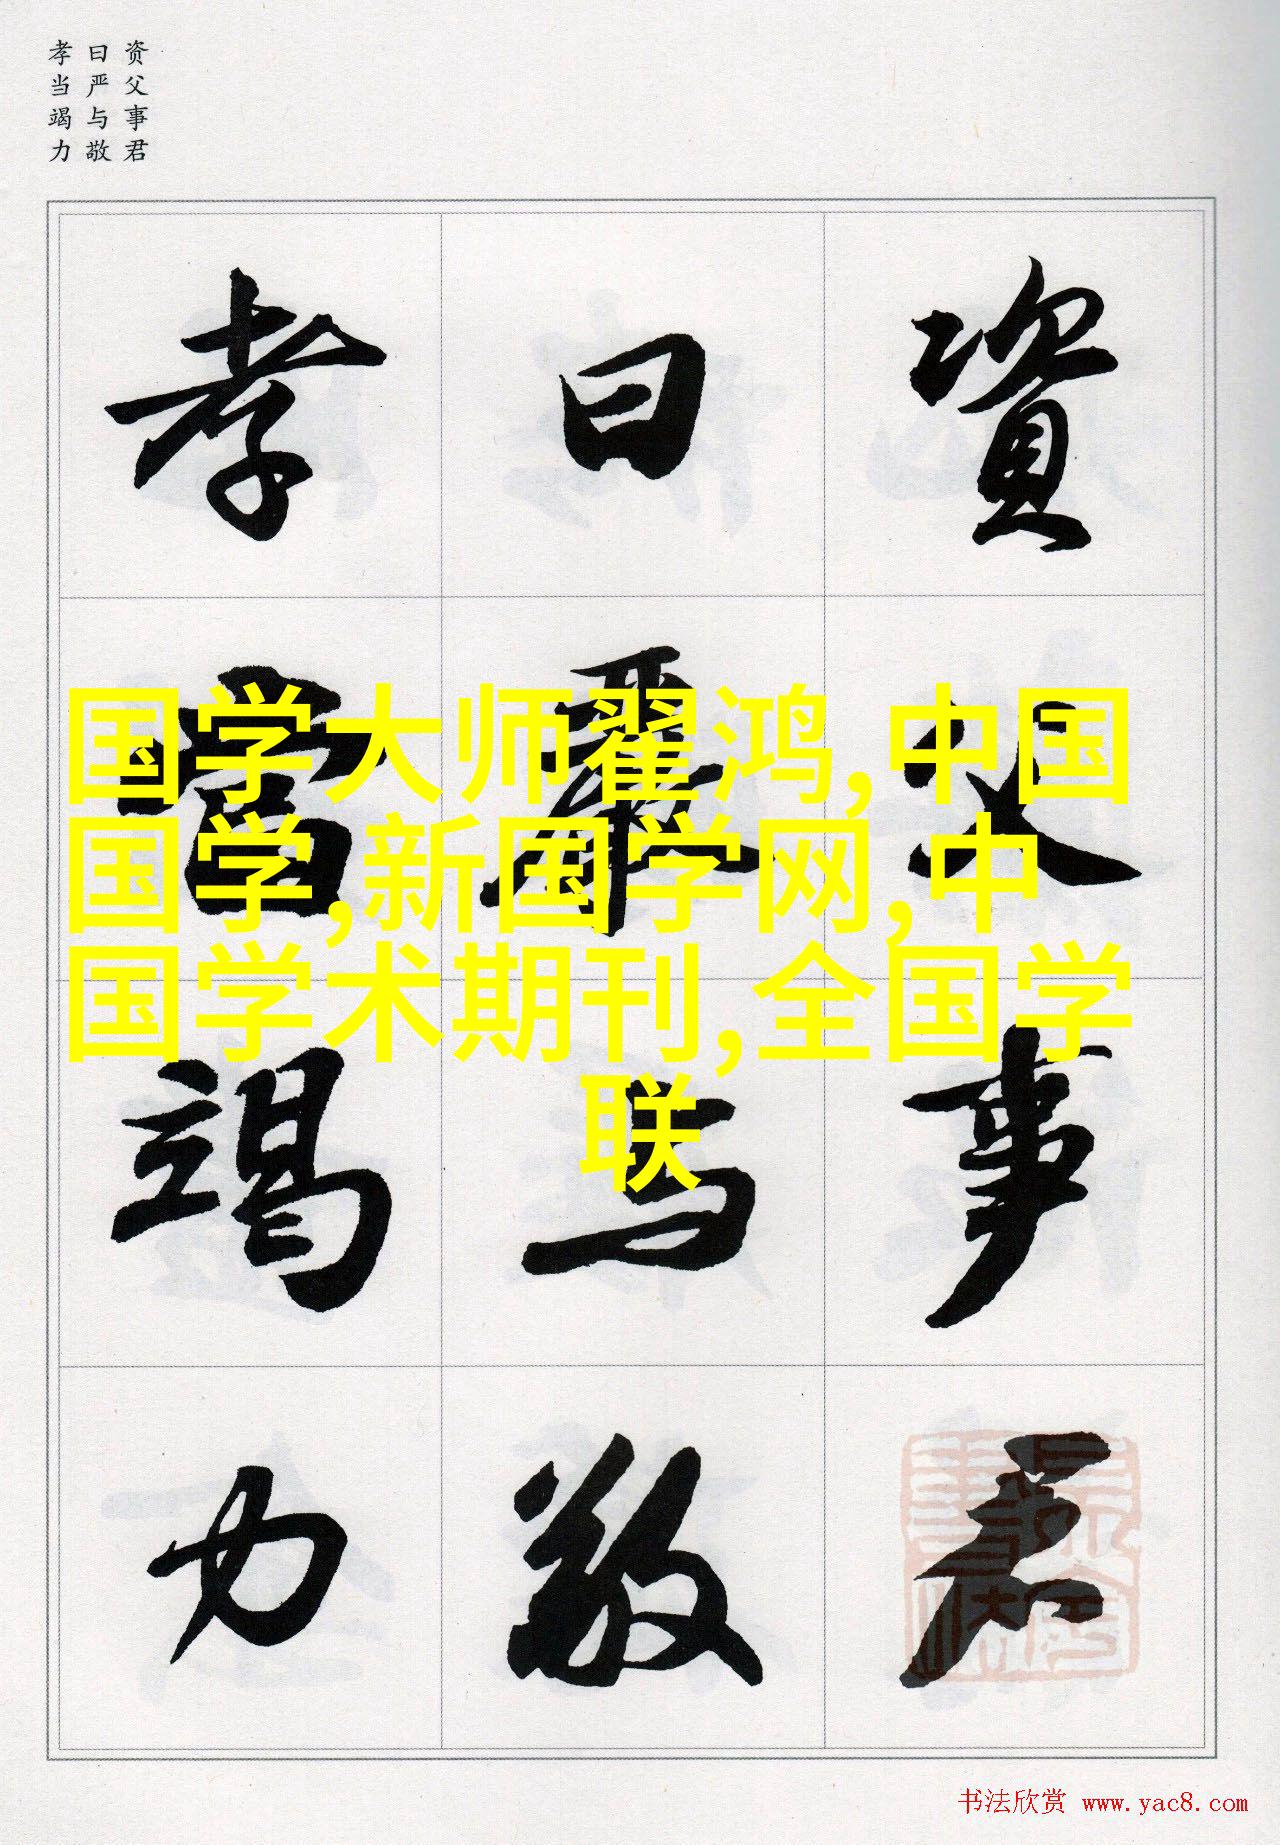 资父事君
曰严与敬
孝当竭力
資父事君
曰嚴与敬
孝當竭力
国学大师翟鸿,中国
国学,新国学网,中
国学术期刊,全国学
联
书法欣赏 www.yac8.com